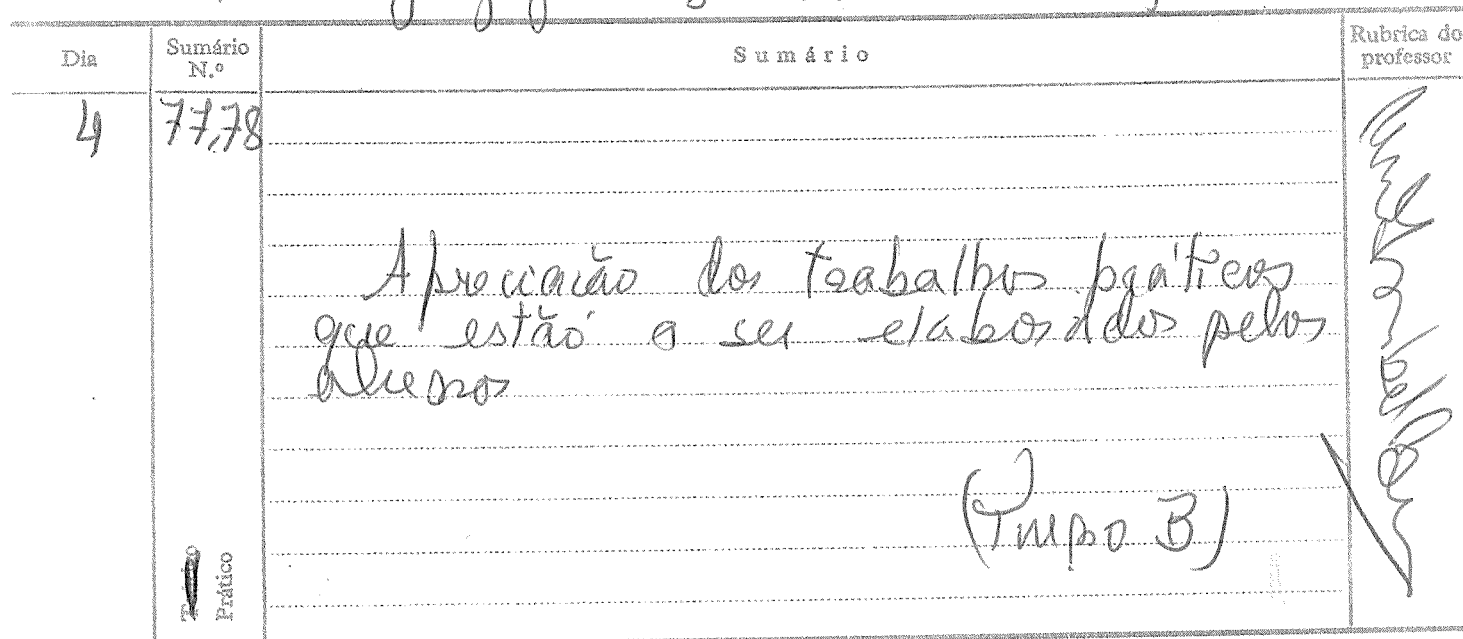 Dia
Sumário N.º
Sumário
Rubrica do professor
4
77,78
Apreciação dos trabalhos práticos
que estão a ser elaborados pelos
alunos
B)
Prático